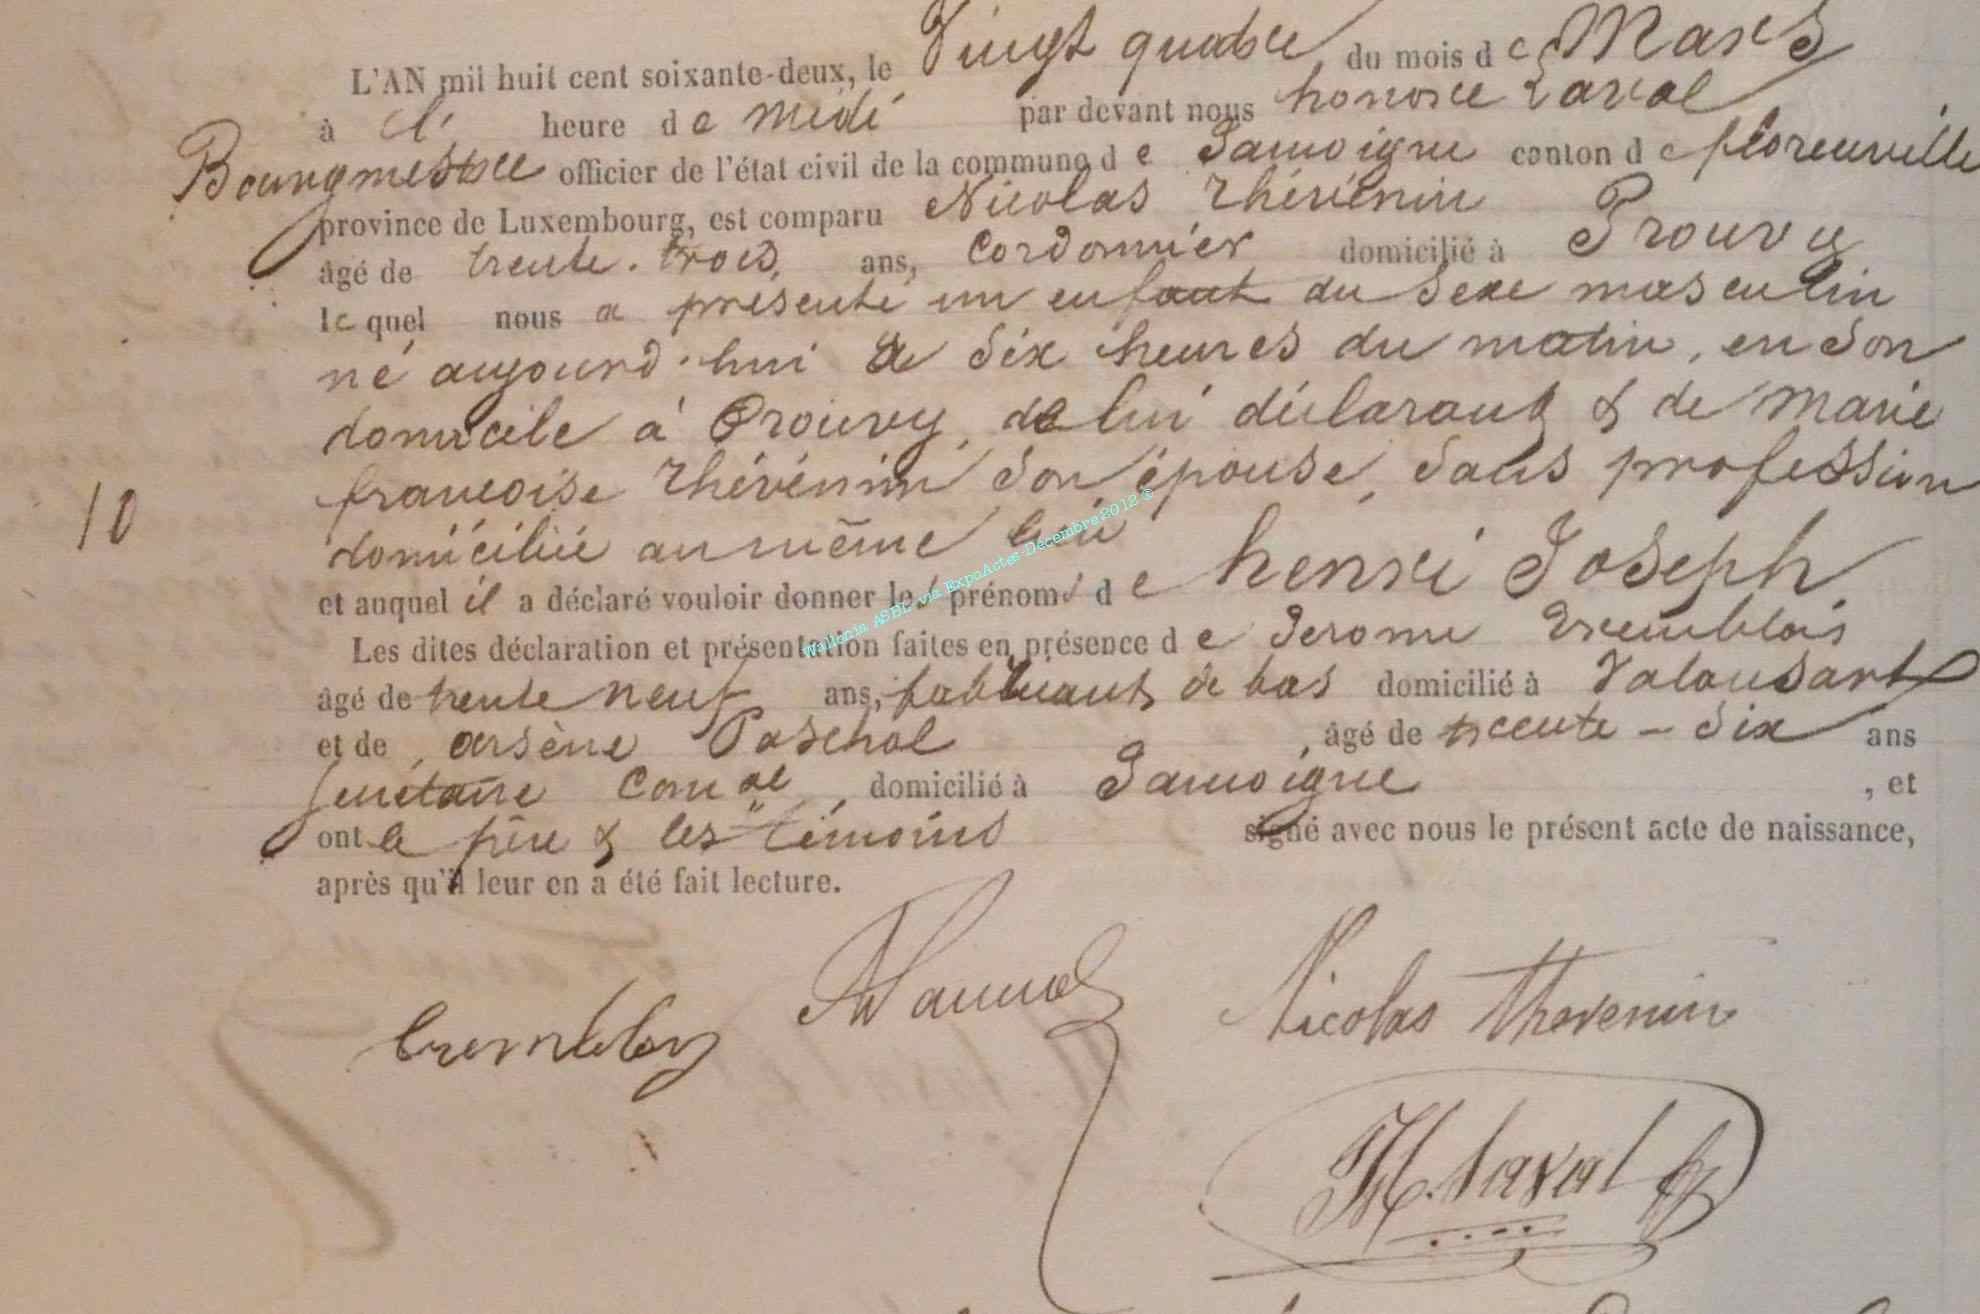 L'AN mil huit cent soixante-deux, le Vingt quatre du mois de Mars
à l' heure de midi par devant nous honoré Laval
Bourgmestre officier de l'état civil de la commune de Jamoigne canton de florenville
province de Luxembourg, est comparu Nicolas Thévénin
âgé de trente-trois ans, Cordonnier domicilié à Prouvy
lequel nous a présenté un enfant du Sexe masculin
né aujourd'hui à Six heures du matin, en Son
domicile à Prouvy, de lui déclarant & de Marie
françoise Thévénin Son épouse, Sans profession
domiciliée au même lieu
10
et auquel il a déclaré vouloir donner les prénoms de henri Joseph
Les dites déclaration et présentation faites en présence de Jerome Tremblois
âgé de trente neuf ans, fabricant de bas domicilié à Valansart
et de arsène Paschal, âgé de trente-Six ans
Secrétaire Comal, domicilié à Jamoigne, et
ont le père & les témoins signé avec nous le présent acte de naissance,
après qu'il leur en a été fait lecture.
Nicolas thevenin
H. Laval
Wallonia ASBL via ExpoActes-Décembre2012 ©